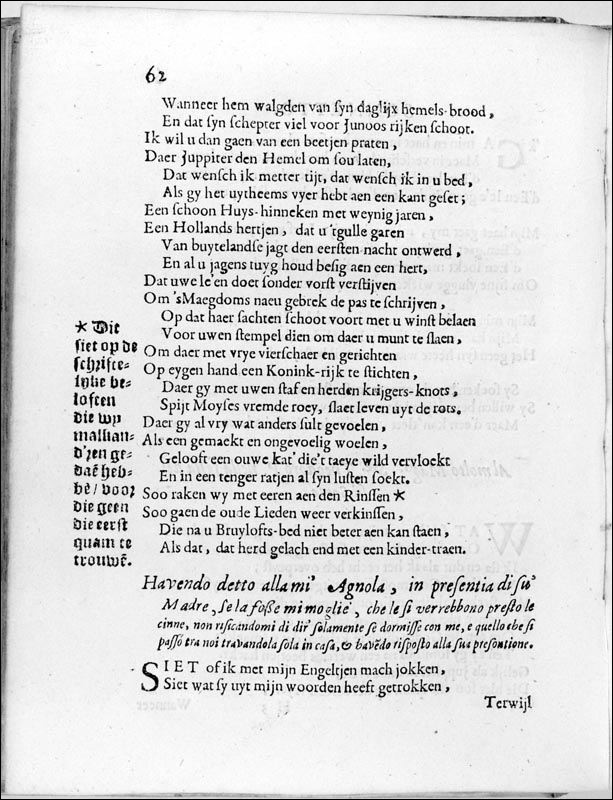 62
Wanneer hem walgden van ſyn daglijx hemels-brood,
En dat ſyn ſchepter viel voor Junoos rijken ſchoot.
Ik wil u dan gaen van een beetjen praten,
Daer Juppiter den Hemel om ſou laten,
Dat wenſch ik metter tijt, dat wenſch ik in u bed,
Als gy het uytheems vyer hebt aen een kant geſet;
Een ſchoon Huys-hinneken met weynig jaren,
Een Hollands hertjen, dat u 'rgulle garen
Van buytelandſe jagt den eerſten nacht ontwerd,
En al u jagens tuyg houd beſig aen een hert,
Dat uwe le'en doet ſonder vorſt verſtijven
Om 'sMaegdoms naeu gebrek de pas te ſchrijven,
Op dat haer ſachten ſchoot voort met u winſt belaen
Voor uwen ſtempel dien om daer u munt te ſlaen,
Om daer met vrye vierſchaer en gerichten
Op eygen hand een Konink-rijk te ſtichten,
Daer gy met uwen ſtaf en herden krijgers-knots,
Spijt Moyſes vremde roey, ſlaet leven uyt de rots.
Daer gy al vry wat anders ſult gevoelen,
Als een gemaekt en ongevoelig woelen,
Gelooft een ouwe kat' die't taeye wild vervloekt
En in een tenger ratjen al ſyn luſten ſoekt.
Soo raken wy met eeren aen den Rinſſen *
Soo gaen de oude Lieden weer verkinſſen,
Die na u Bruylofts-bed niet beter aen kan ſtaen,
Als dat, dat herd gelach end met een kinder-traen.
* Dit
ſiet op de
ſchrifte-
lijke be-
loften
die wy
malkan-
d'ren ge-
daē heb-
bē / voor
die geen
die eerſt
quam te
trouwē.
Havendo detto alla mi' Agnola, in preſentia di ſu'
Madre, ſe la foße mi moglie', che le ſi verrebbono preſto le
cinne, non riſicandomi di dir' ſolamente ſe dormiſſe con me, e quello che ſi
paſſò tra noi travandola ſola in caſa, & havēdo riſpoſto alla ſua preſontione.
SIET of ik met mijn Engeltjen mach jokken,
Siet wat ſy uyt mijn woorden heeft getrokken,
Terwijl